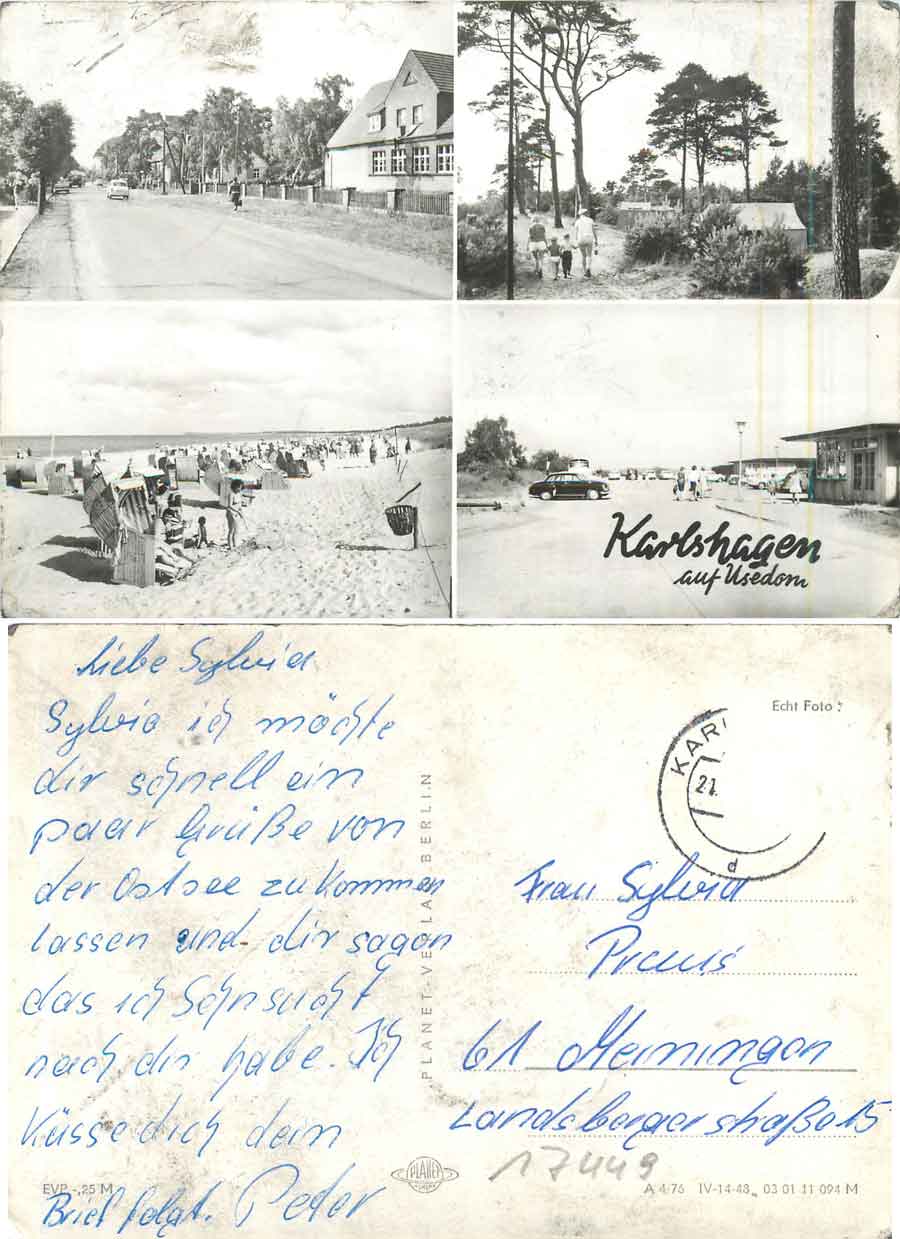 Karlshagen
auf Usedom
Liebe Sylvia
Sylvia ich möchte
dir schnell ein
paar Grüße von
der Ostsee zukommen
lassen und dir sagen
das ich Sehnsucht
nach dir habe. Ich
Küsse dich dein
Brief folgt. Peter
EVP -,25 M
PLANET-VERLAG BERLIN
PLANET
Echt Foto
KARL
21.
d
Frau Sylvia
Preuis
61 Meiningen
Landsbergerstraße 15
17449
A 4/76 IV-14-48 03 01 11 094 M